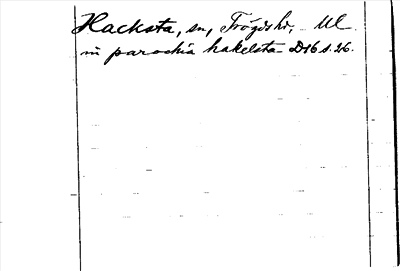 Hacksta, sn, Trögds hd, Ul
in parochia hakelsta DS 6 s. 26.